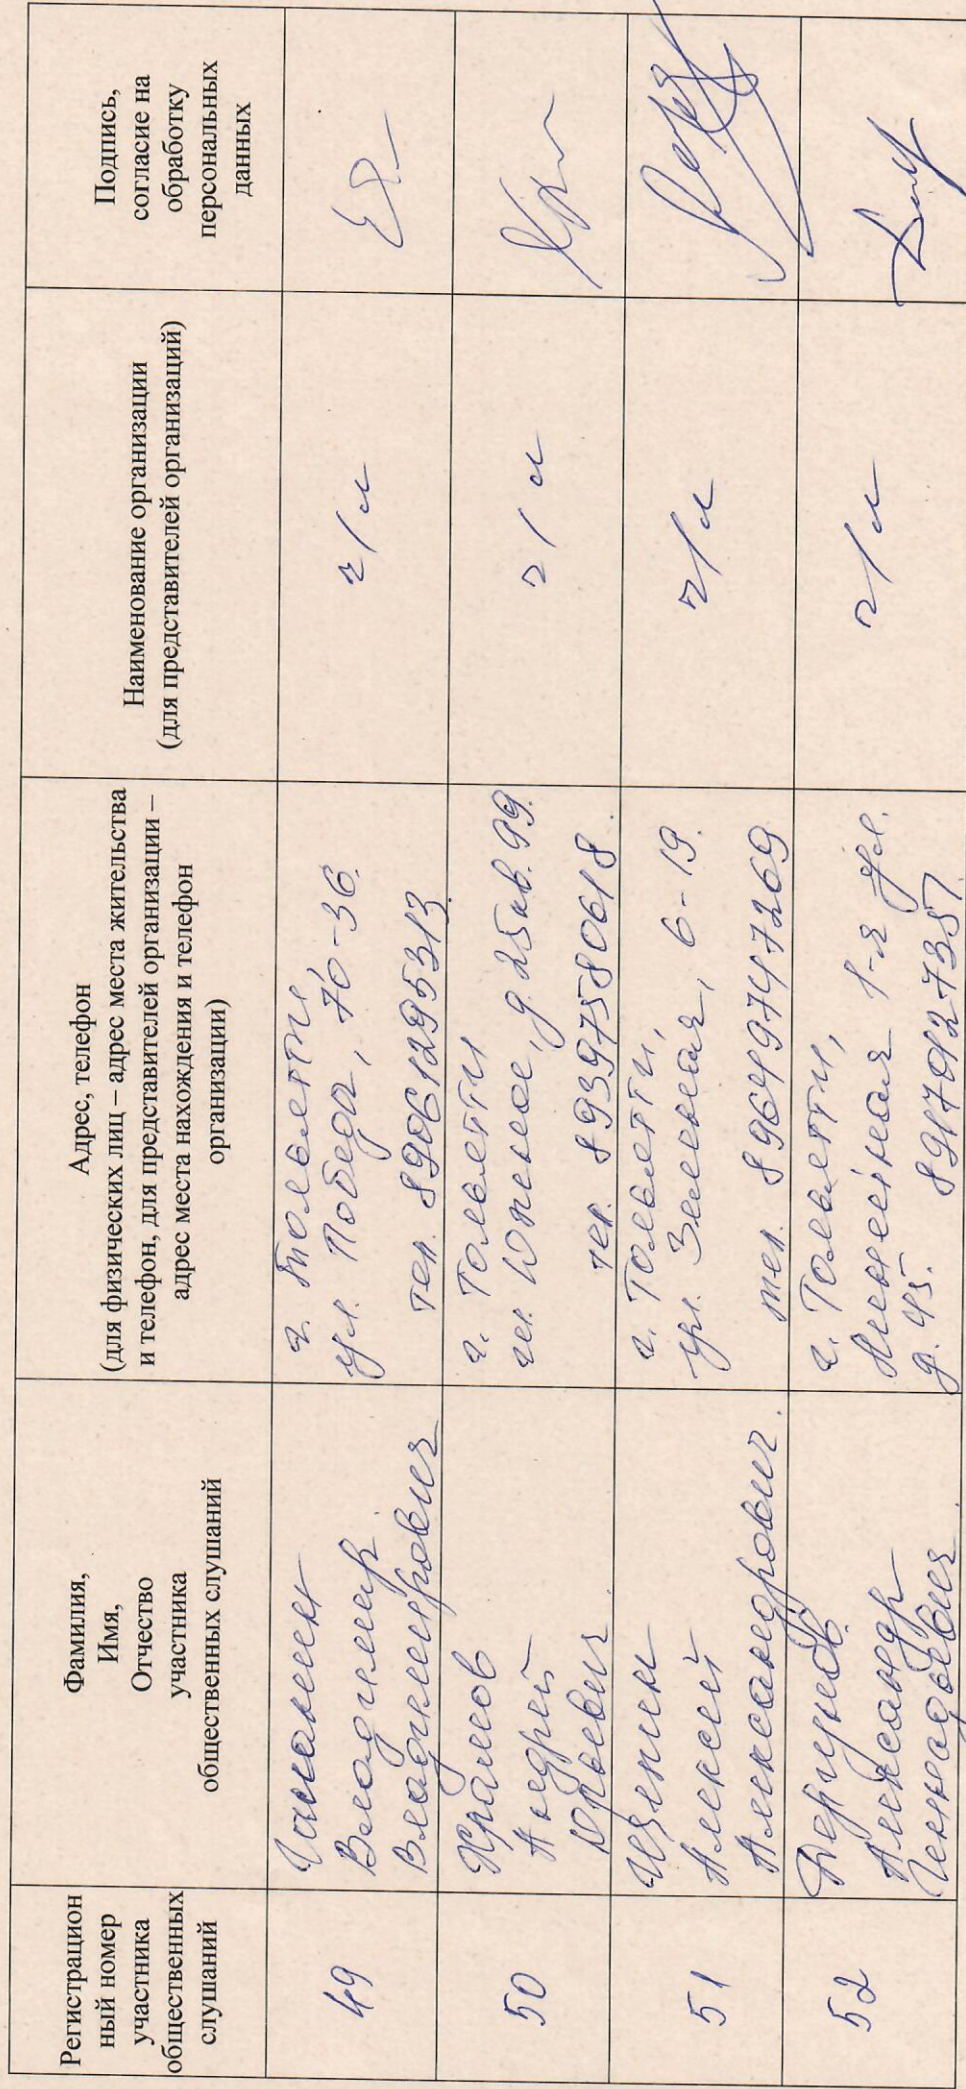 Регистрацион
ный номер
участника
общественных
слушаний
Фамилия,
Имя,
Отчество
участника
общественных слушаний
Адрес, телефон
(для физических лиц – адрес места жительства
и телефон, для представителей организации –
адрес места нахождения и телефон
организации)
Наименование организации
(для представителей организаций)
Подпись,
согласие на
обработку
персональных
данных
49
Владимир
Владимирович
г. Тольятти,
ул. Победа, 70-36.
тел. 89061295313
ч/л
50
Храмов
Андрей
Юрьевич
г. Тольятти
ул. Южное, д. 25 кв. 99.
тел. 89397580618.
ч/л
51
Щепкин
Алексей
Александрович.
г. Тольятти,
ул. Зеленая, 6-19.
тел. 89649747269
ч/л
52
Дергунов
Александр
Геннадьевич.
г. Тольятти,
Линейная 1-я ул.
д. 45. 89170127357
ч/л